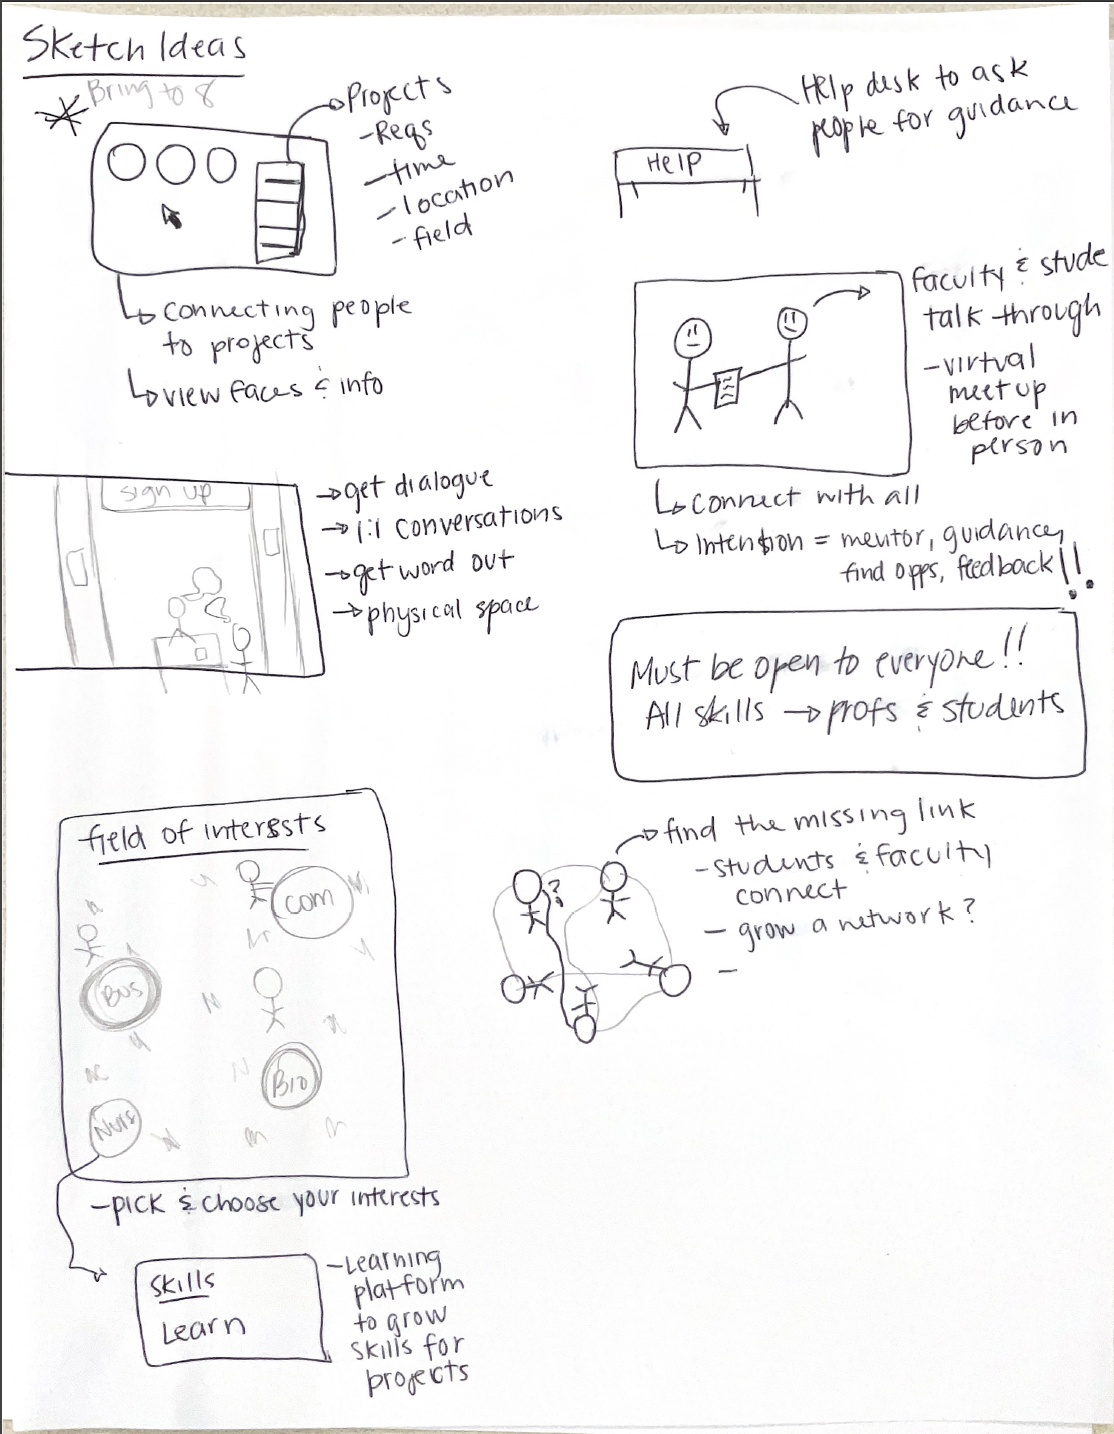 Sketch Ideas
Bring to 8
Projects
- Reqs
- time
- location
- field
connecting people
to projects
view faces & info
Help desk to ask
people for guidance
HELP
faculty & stude
talk through
- virtual
meet up
before in
person
connect with all
Intention = mentor, guidance,
find opps, feedback!!
sign up
get dialogue
1:1 conversations
get word out
physical space
Must be open to everyone!!
All skills → profs & students
field of interests
com
Bus
Bio
Nurs
- pick & choose your interests
skills
Learn
- Learning
platform
to grow
skills for
projects
find the missing link
- students & faculty
connect
- grow a network?
-
?